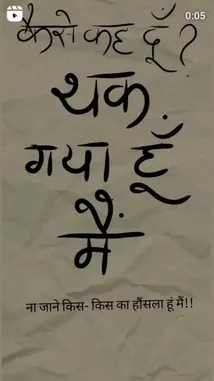 0:05
कैसे कह दूँ ?
थक
गया हूँ
मैं
ना जाने किस- किस का हौंसला हूं मैं!!